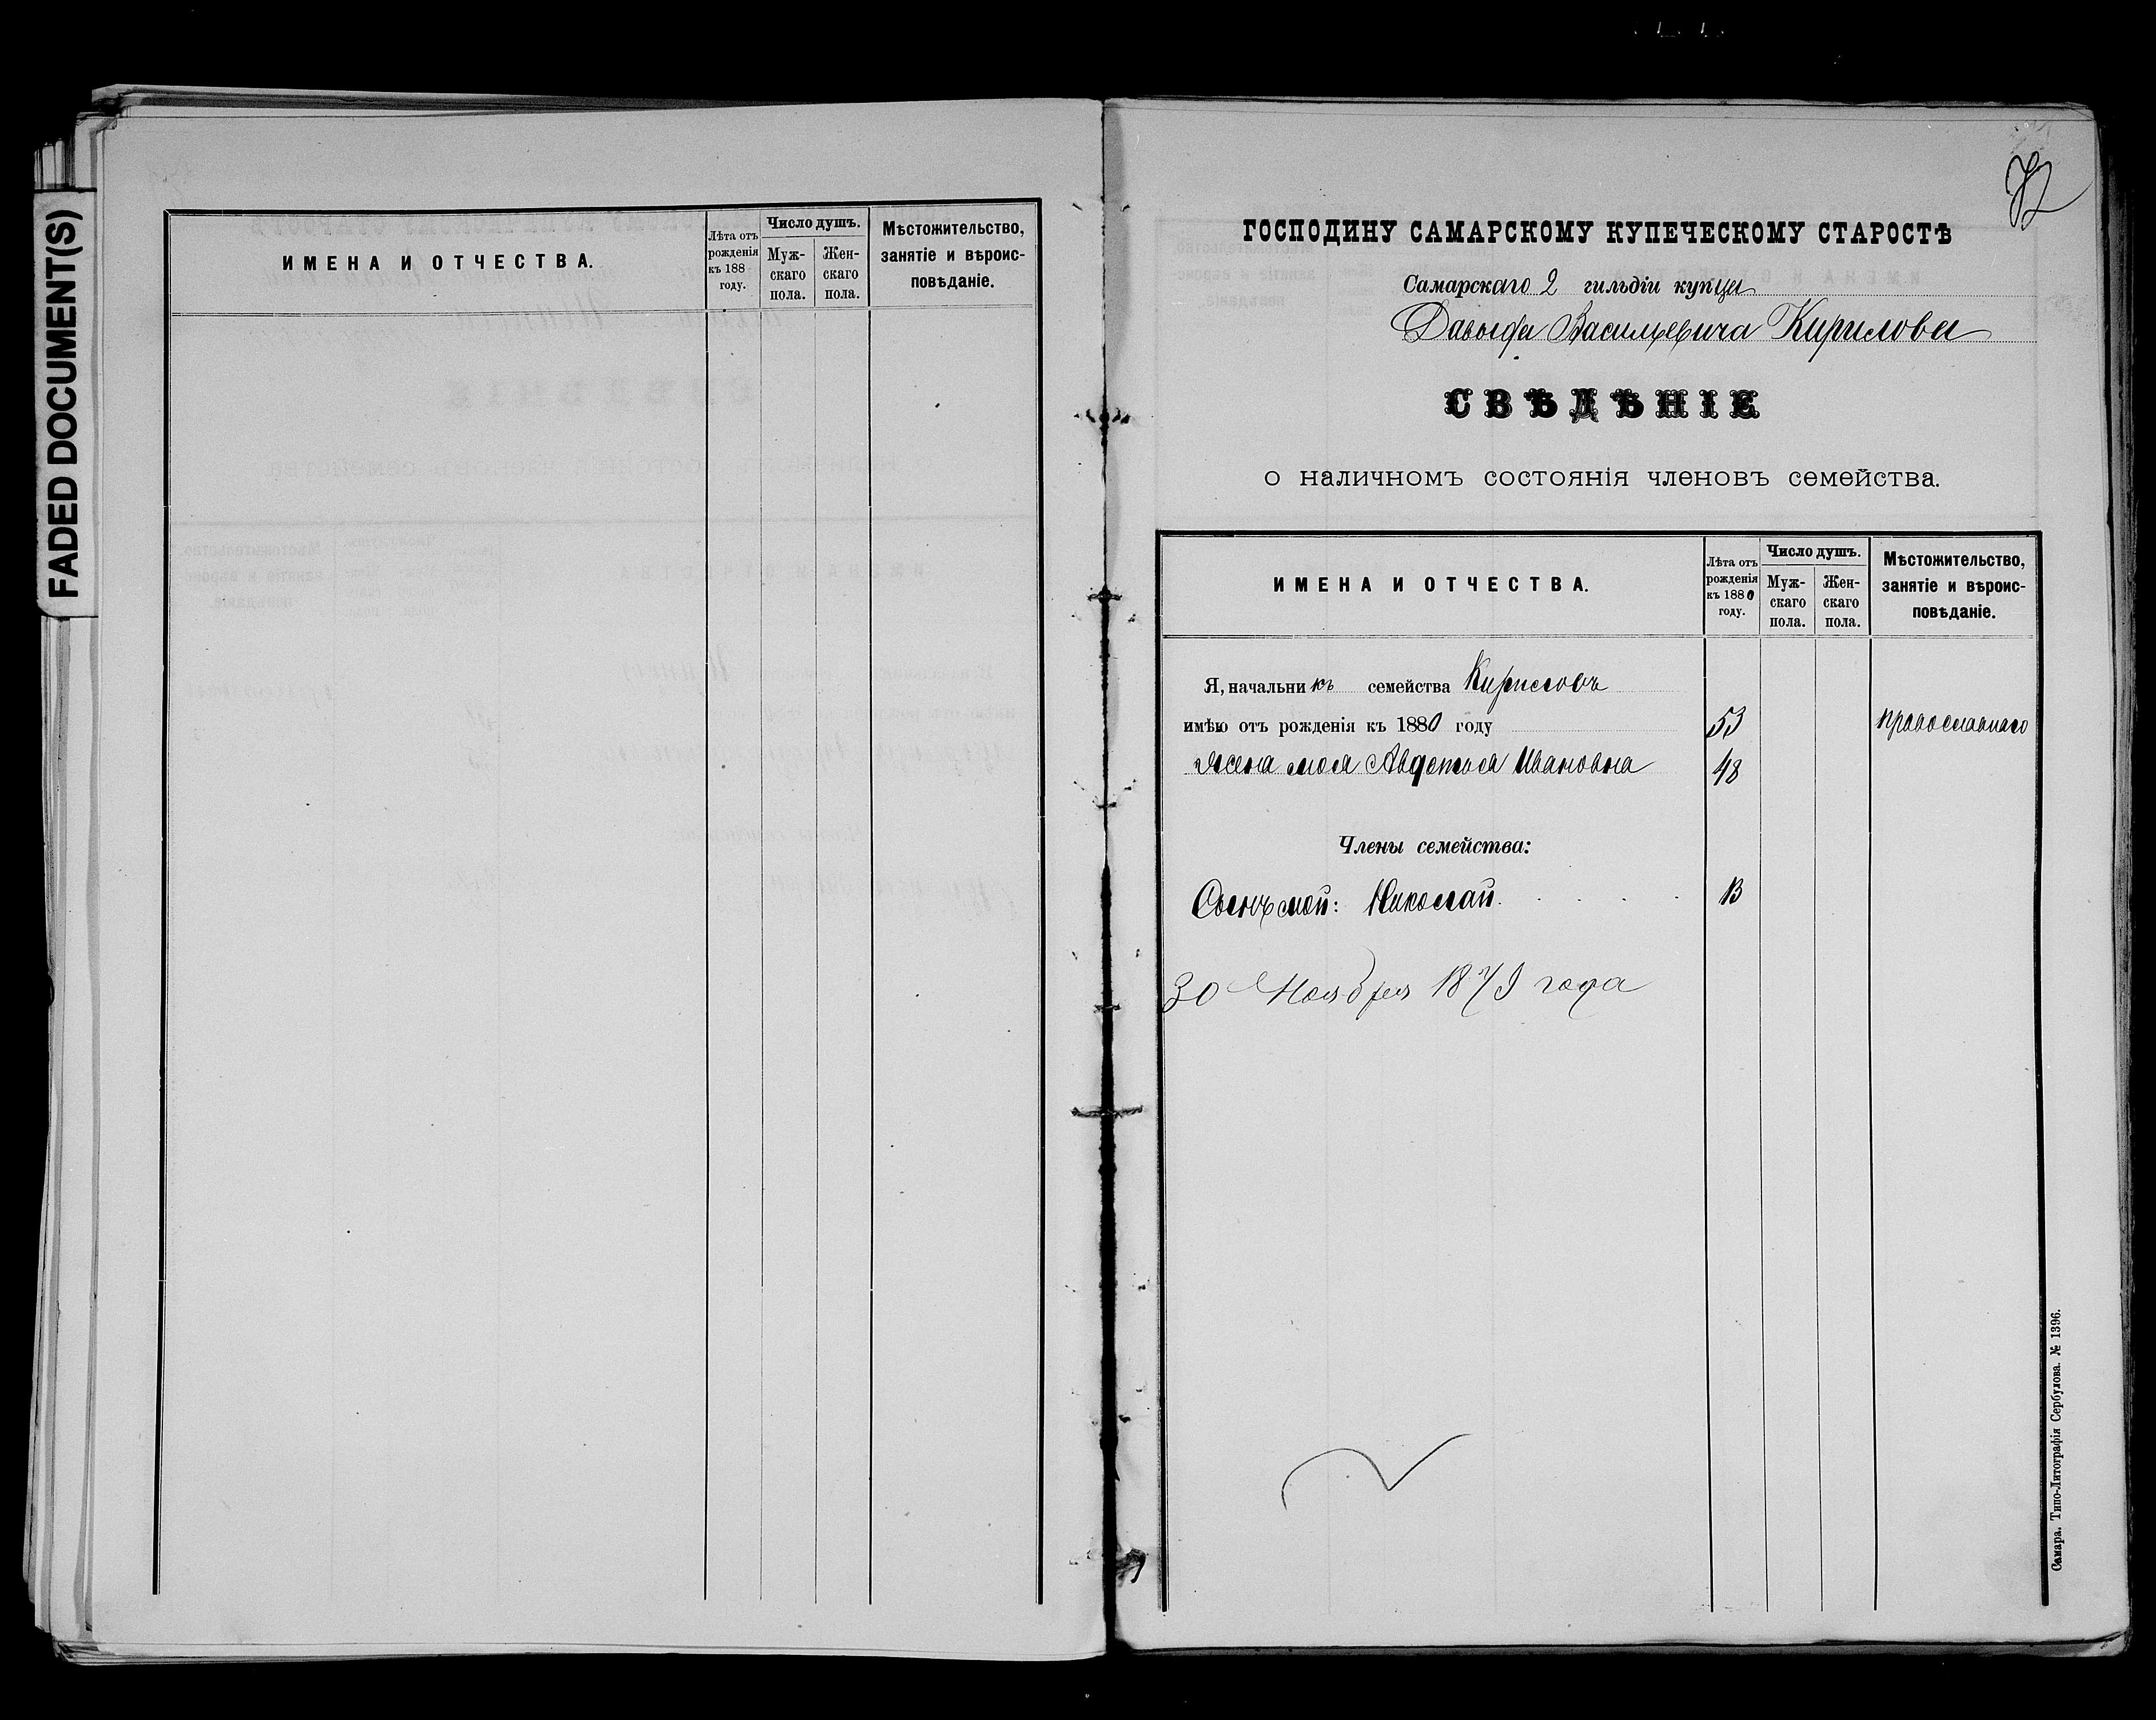 FADED DOCUMENT(S)
ИМЕНА И ОТЧЕСТВА.
Лѣта отъ рожденія къ 188 году.
Число душъ.
Муж-скаго пола.
Жен-скаго пола.
Мѣстожительство, занятіе и вѣроис-повѣданіе.
72
ГОСПОДИНУ САМАРСКОМУ КУПЕЧЕСКОМУ СТАРОСТѢ
Самарскаго 2 гильдіи купца
Давыда Васильевича Кирилова
СВѢДѢНІЕ
о наличномъ состоянія членовъ семейства.
ИМЕНА И ОТЧЕСТВА.
Лѣта отъ рожденія къ 1880 году.
Число душъ.
Муж-скаго пола.
Жен-скаго пола.
Мѣстожительство, занятіе и вѣроис-повѣданіе.
Я, начальникъ семейства Кириловъ
имѣю отъ рожденія къ 1880 году 53 православнаго
Жена моя Авдотья Ивановна 48
Члены семейства:
Сынъ мой: Николай. 13
30 Ноября 1879 года
Самара. Типо-Литографія Сербулова. № 1396.